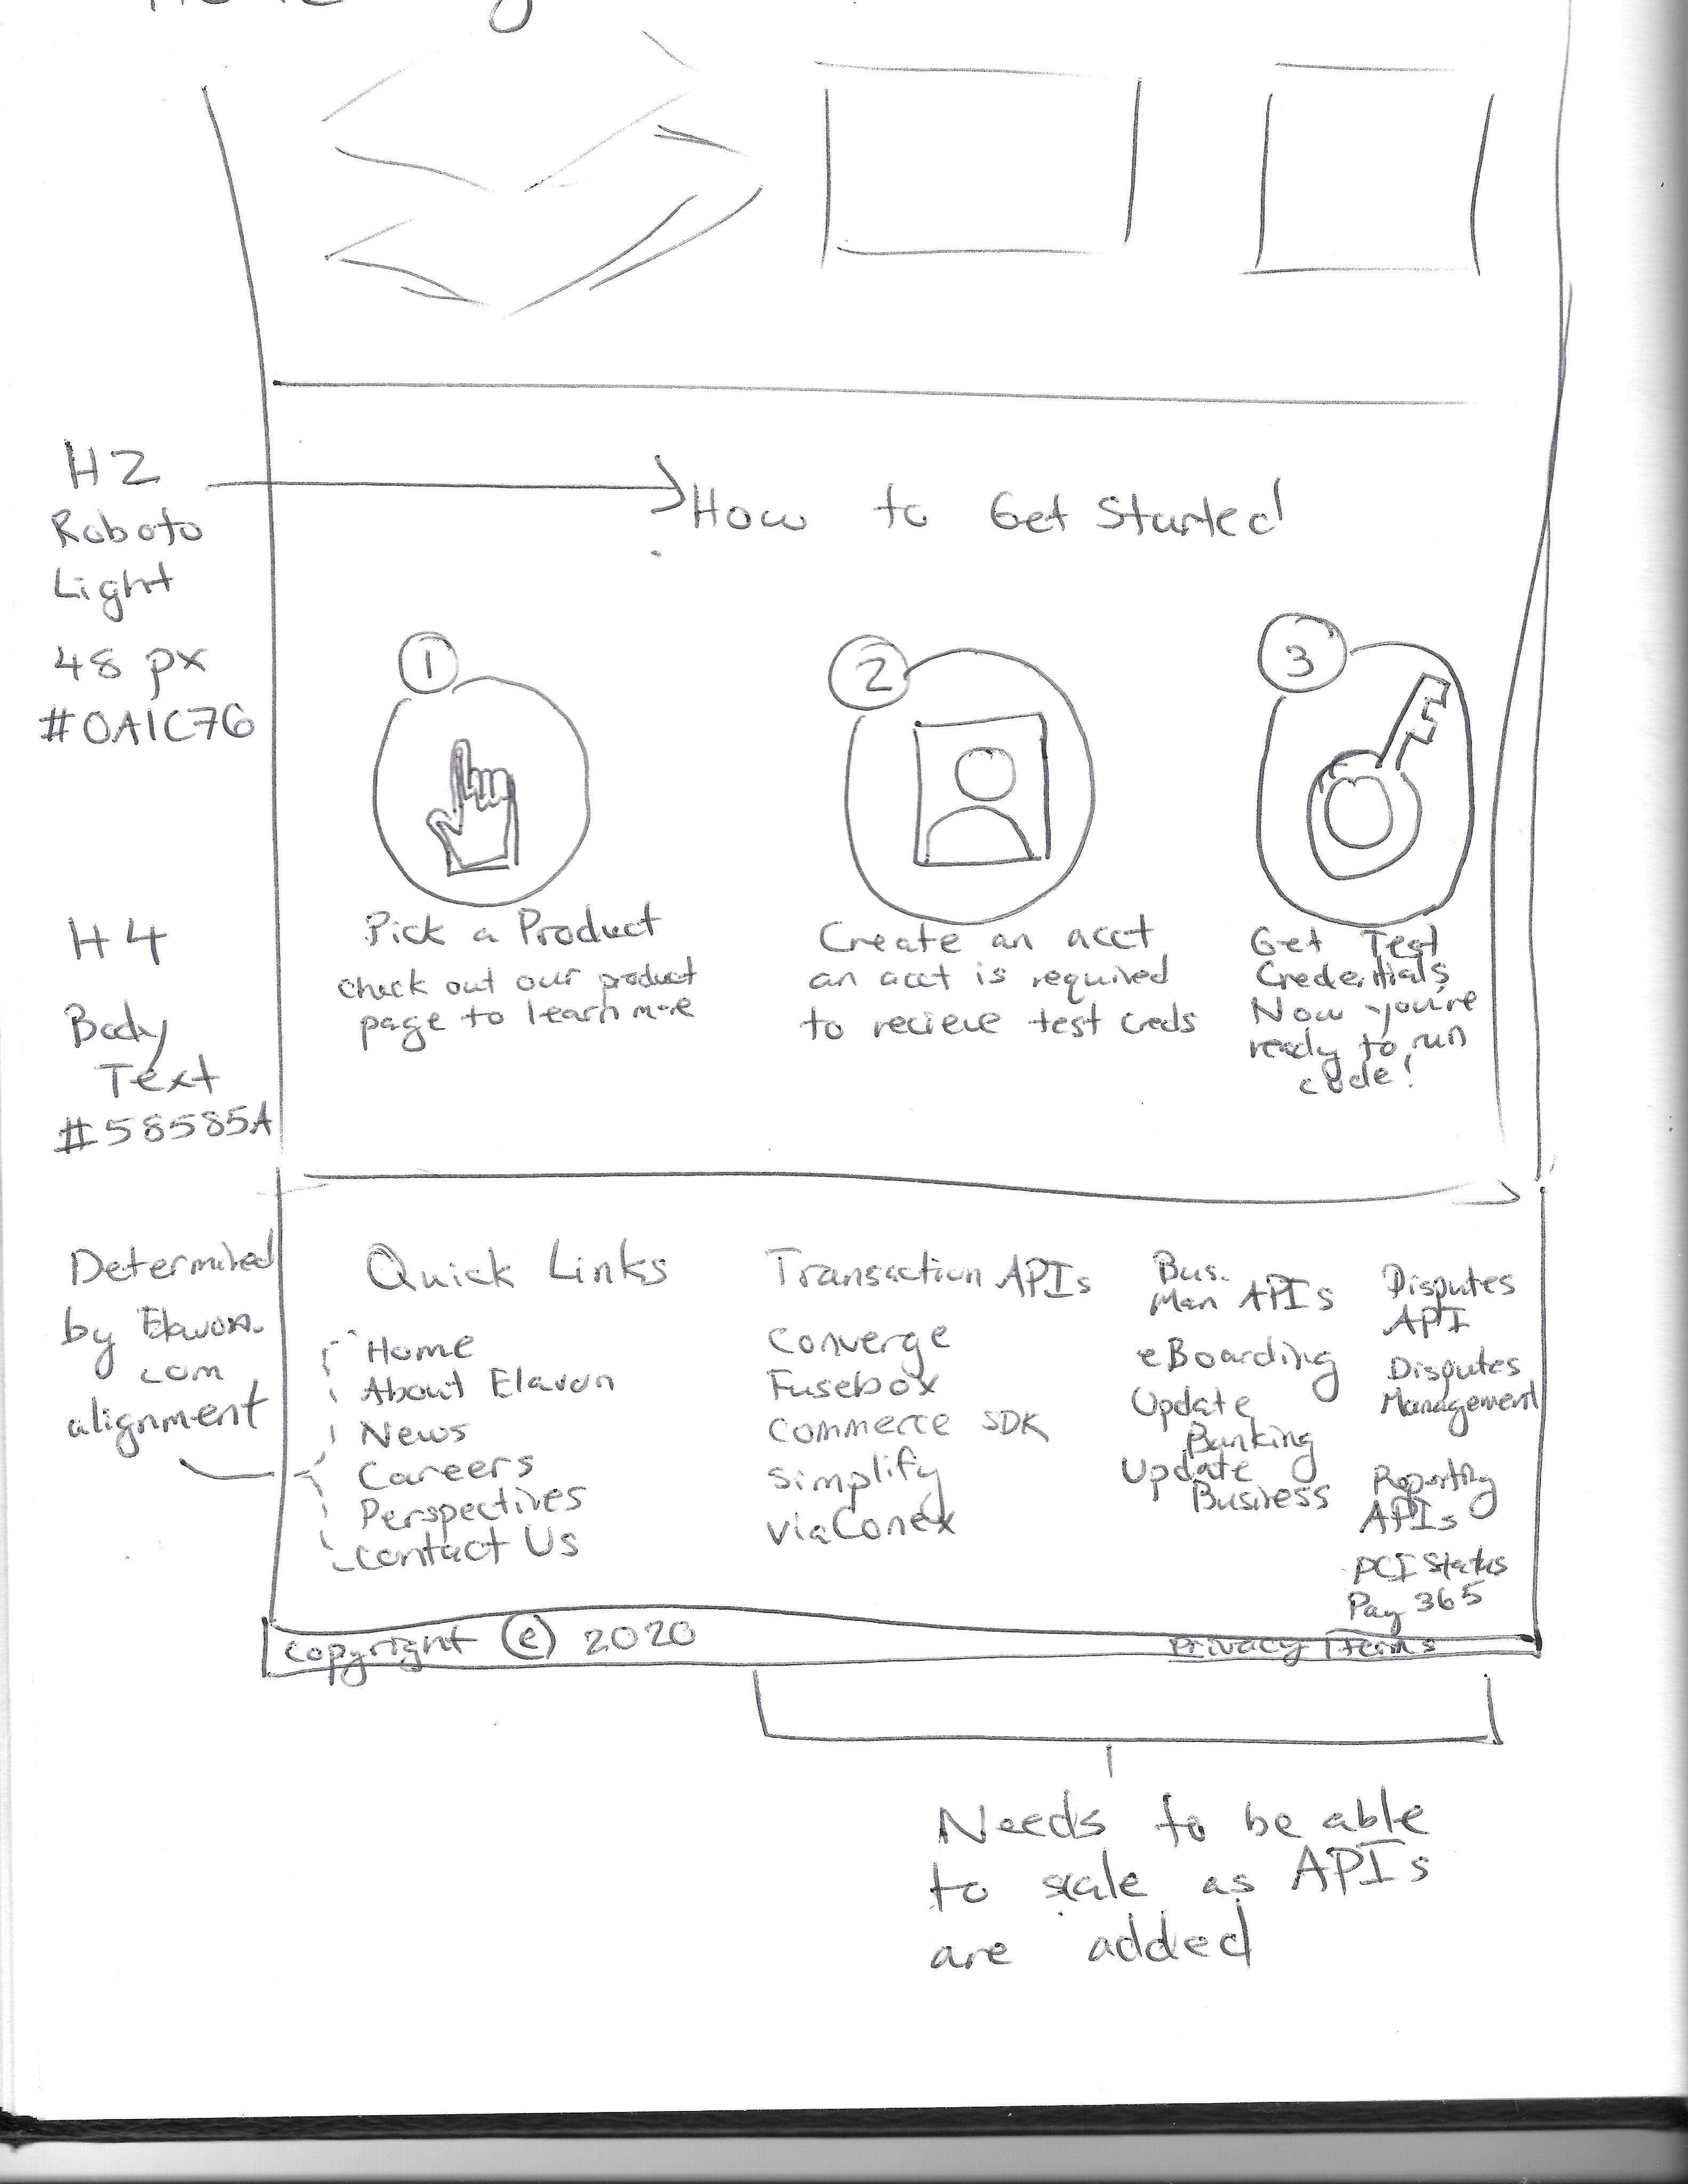 H2
Roboto
Light
48 px
#0A1C76
How to Get Started
1
2
3
H4
Body
Text
#58585A
Pick a Product
check out our product
page to learn more
Create an acct
an acct is required
to recieve test creds
Get Test
Credentials
Now you're
ready to run
code!
Determined
by Elavon.
com
alignment
Quick Links
Home
About Elavon
News
Careers
Perspectives
Contact Us
Transaction APIs
Converge
Fusebox
Commerce SDK
Simplify
viaConex
Bus.
Man APIs
eBoarding
Update
Banking
Update
Business
Disputes
API
Disputes
Management
Reporting
APIs
PCI Status
Pay 365
Copyright © 2020
Privacy | Terms
Needs to be able
to scale as APIs
are added